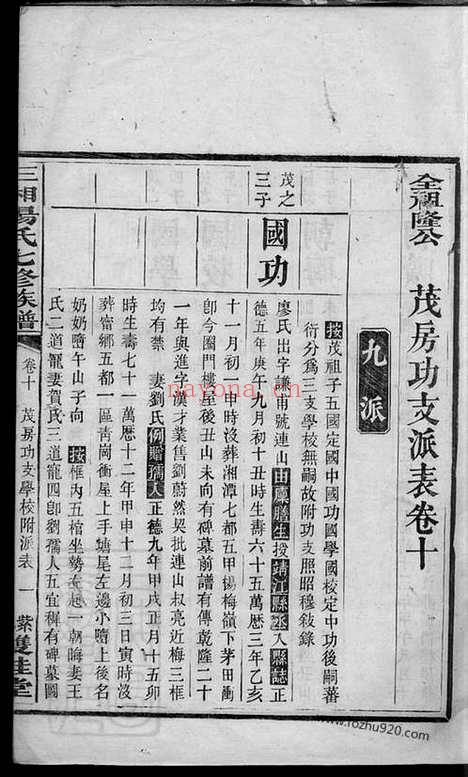 全祖隆公
茂房功支派表卷十
九派
按茂祖子五國定國中國功國學國校定中功後嗣蕃
衍分爲三支學校無嗣故附功支照昭穆敍錄
茂之
三子
國功
廖氏出字謙甫號連山由廩膳生授靖江縣丞入縣誌正
德五年庚午九月初十丑時生壽六十五萬歷三年乙亥
十一月初一申時沒葬湘潭七都五甲楊梅嶺下茅田衝
卽今闔門樓屋後丑山未向有碑墓前譜有傳乾隆二十
一年與進字漢才業售劉蔚然契批連山叔亮近梅三框
均有禁 妻劉氏例贈孺人正德九年甲戌正月十五卯
時生壽七十一萬曆十二年甲申十二月初三日寅時沒
葬甯鄉五都一區靑崗衝屋上手塘尾左邊小嘴上後名
奶奶嘴午山子向 按框內五棺坐勢左起一朝晦妻王
氏二道寵妻賀氏三道寵四卽劉孺人五宜穉有碑墓圖
三湘楊氏七修族譜
卷十
茂房功支學校附派表
一
雙桂堂
nayona.cn
www.rozhu920.com